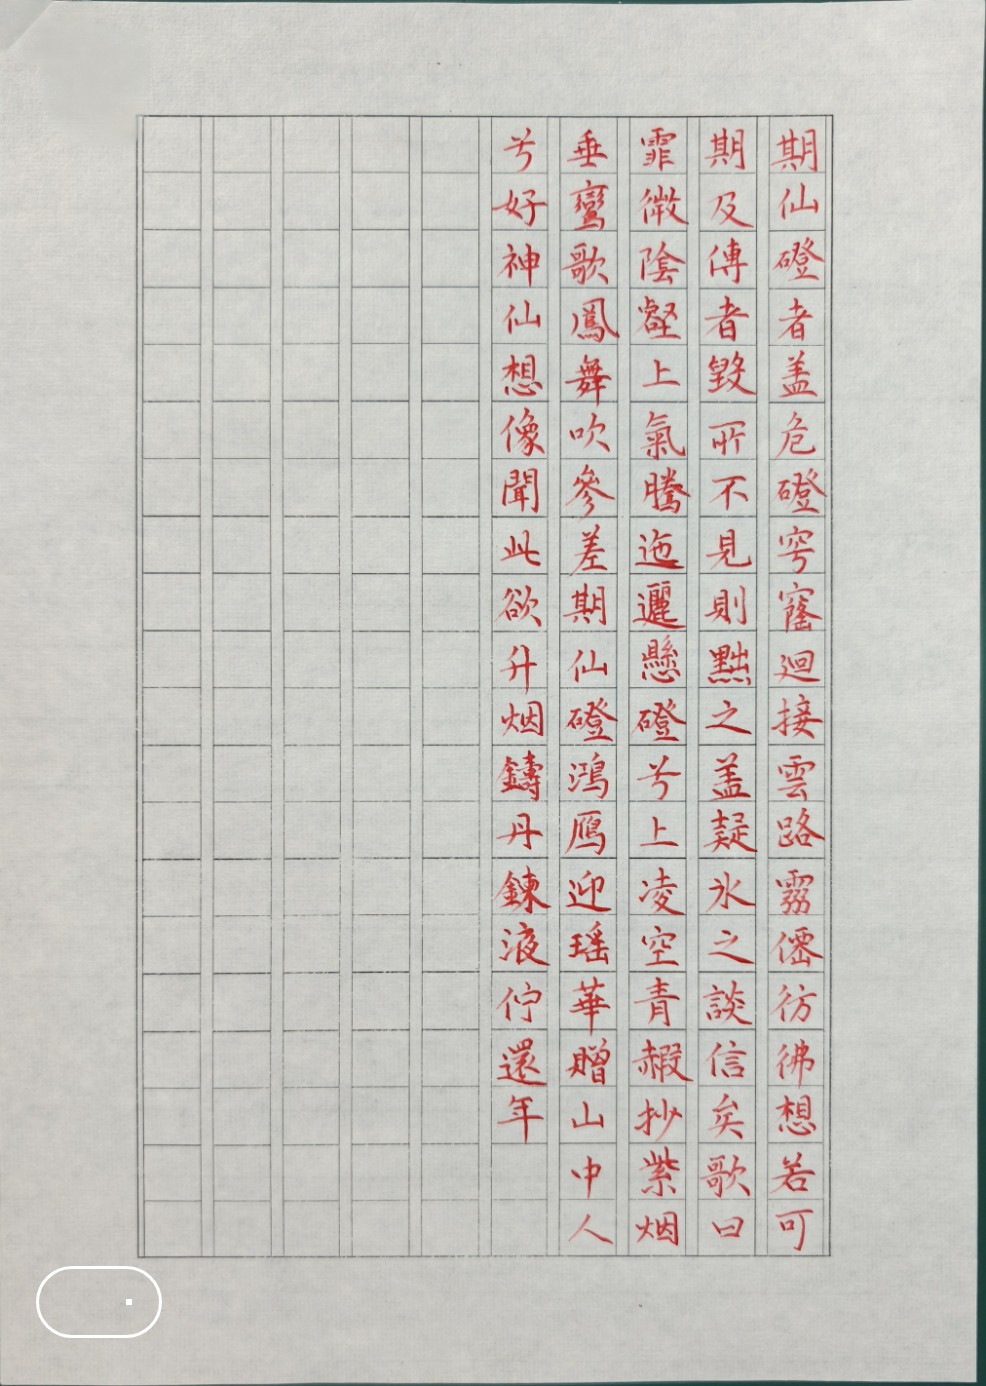 期仙磴者盖危磴穹窿廻接雲路霛僊彷彿想若可
期及傳者毀所不見則黜之盖疑氷之談信矣歌曰
霏微陰壑上氣騰迤邐懸磴兮上凌空青赮抄紫烟
垂鸞歌鳳舞吹參差期仙磴鴻鴈迎瑶華贈山中人
兮好神仙想像聞此欲升烟鑄丹鍊液佇還年